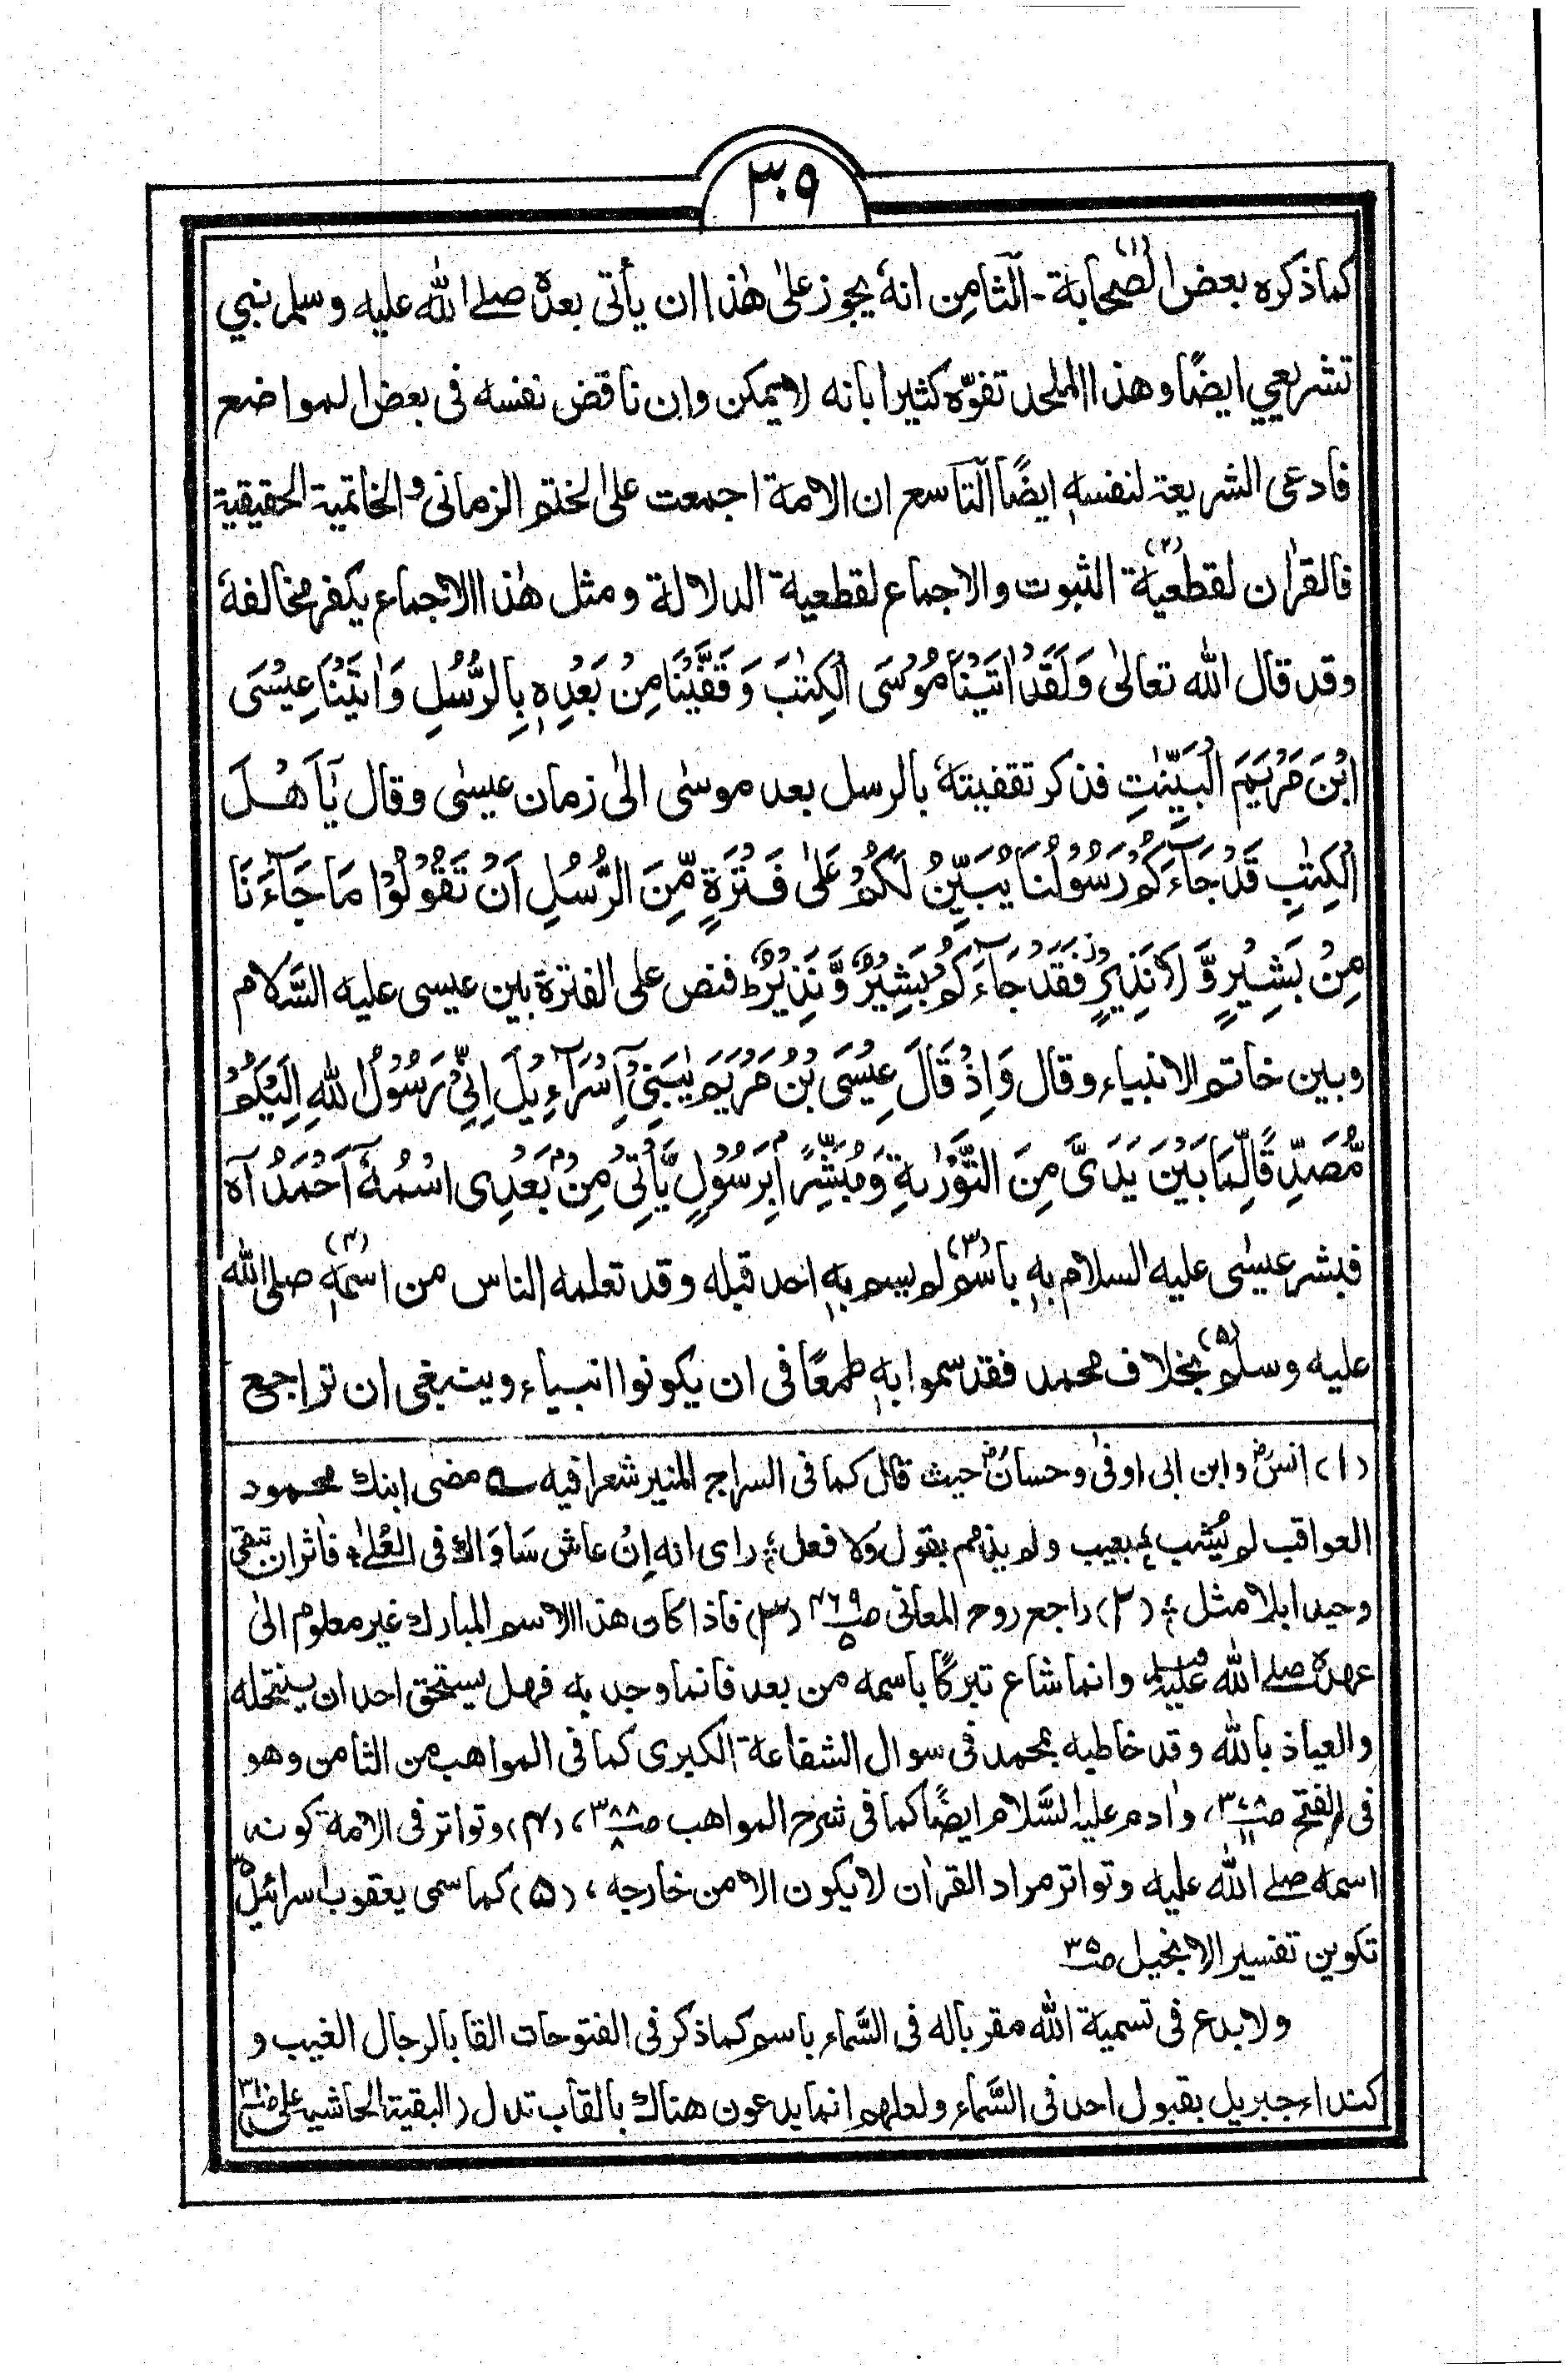 ٣٠٩
كما ذكره بعض الصحابة(١)- اَلثامِن انهٗ يجوز علىٰ هٰذا ان يأتى بعدهٗ صلے الله عليه وسلم نبي
تشريعي ايضًا وهذا الملحد تفوّه كثيرا بانه لا يمكن وان ناقض نفسه فى بعض المواضع
فادعى الشريعة لنفسهٖ ايضًا اَلتاسع ان الامة اجمعت على الختم الزمانى والخاتمية الحقيقية
فالقراٰن لقطعية(٢) الثبوت والاجماع لقطعية الدلالة ومثل هٰذا الاجماع يكفر مخالفهٗ
وقد قال الله تعالىٰ وَلَقَدْ اٰتَيْنَا مُوْسَى الْكِتٰبَ وَقَفَّيْنَا مِنْ بَعْدِهٖ بِالرُّسُلِ وَاٰتَيْنَا عِيْسَى
ابْنَ مَرْيَمَ الْبَيِّنٰتِ فذكر تقفيتهٗ بالرسل بعد موسٰى الىٰ زمان عيسٰى وقال يٰٓاَهْلَ
الْكِتٰبِ قَدْ جَآءَكُمْ رَسُوْلُنَا يُبَيِّنُ لَكُمْ عَلىٰ فَتْرَةٍ مِّنَ الرُّسُلِ اَنْ تَقُوْلُوْا مَا جَآءَنَا
مِنْۢ بَشِيْرٍ وَّلَا نَذِيْرٍ فَقَدْ جَآءَكُمْ بَشِيْرٌ وَّنَذِيْرٌ ط فنص على الفترة بين عيسى عليه السَّلام
وبين خاتم الانبياء وقال وَاِذْ قَالَ عِيْسَى بْنُ مَرْيَمَ يٰبَنِىْٓ اِسْرَآءِيْلَ اِنِّىْ رَسُوْلُ اللهِ اِلَيْكُمْ
مُّصَدِّقًا لِّمَا بَيْنَ يَدَىَّ مِنَ التَّوْرٰىةِ وَمُبَشِّرًاۢ بِرَسُوْلٍ يَّاْتِىْ مِنْۢ بَعْدِى اسْمُهٗٓ اَحْمَدُ اٰه
فبشر عيسٰى عليه السلام بهٖ باسم(٣) لم يسم بهٖ احد قبله وقد تعلمه الناس من اسمهٖ(٤) صلى الله
عليه وسلم(٥) بخلاف محمد فقد سموا بهٖ طمعًا فى ان يكونوا انبياء وينبغى ان تراجع
(١) انسؓ وابن ابى اوفىٰ وحسانؓ حيث قال كما فى السراج المنير شعرا فيه ؎ مضى ابنك محمود
العواقب لم يُشب ؛ بعيب ولم يذمم بقول وَلا فعل ؛ راى انه اِنْ عاش سَاوَاك فى العُلىٰ ؛ فاٰثر ان تبقى
وحيدا بلا مثل ؛ (٢) راجع روح المعانى صـ٤٦٩/٥ (٣) فاذا كان هذا الاسم المبارك غير معلوم الىٰ
عهدهٖ صلے الله عليه وانما شاع تبركًا باسمه من بعد فانما وجد به فهل يستحق احد ان ينتحله
والعياذ بالله وقد خاطبه بمحمد فى سوال الشفاعة الكبرى كما فى المواهب من الثامن وهو
فى الفتح صـ٣٤٨/١١، واٰدم عليه السَّلام ايضًا كما فى شرح المواهب صـ٣٨٨/٨، (٤) وتواتر فى الامة كونه
اسمه صلے الله عليه وتواتر مراد القراٰن لا يكون الا من خارجه، (٥) كما سمى يعقوب اسرائيل ٣٥
تكوين تفسير الانجيل صـ٣٥
ولا بدع فى تسمية الله مقرباله فى السَّماء باسم كما ذكر فى الفتوحات القابا لرجال الغيب و
كنداء جبريل بقبول احد فى السَّماء ولعلهم انما يدعون هناك بالقاب تدل (البقية الحاشيه على